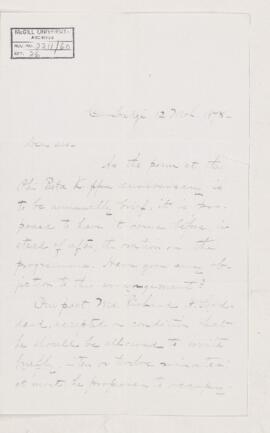 McGILL UNIVERSITY
ARCHIVES
ACC. NO. 2211/60
REF. 56
Cambridge 12 Nov. 1878.
Dear Sir
As the poem at the
Phi Beta K. anniversary is
to be unusually brief, it is pro-
posed to have it come before, in-
stead of after, the oration on the
programme. Have you any ob-
jection to the arrangement?
Our poet Mr. Richard
accepted on condition that
he should be allowed to write
briefly, ten or twelve minutes
at most he proposes to occupy.